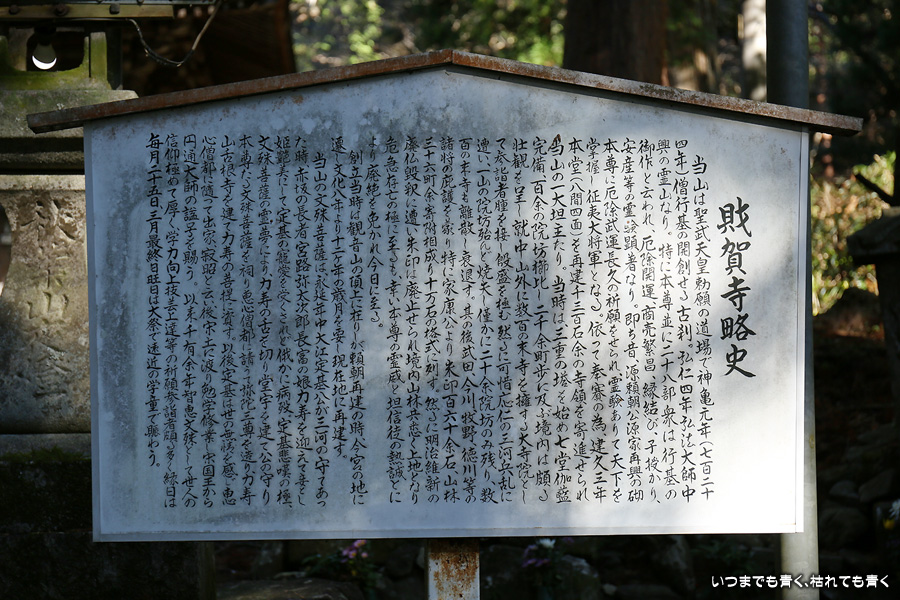 財賀寺略史
当山は聖武天皇勅願の道場で神亀元年(七百二十
四年)僧行基の開創せる古刹。弘仁四年弘法大師中
興の霊山なり。特に本尊並に二十八部衆は行基の
御作と云われ、厄除開運、商売繁昌、縁結び、子授かり、
安産等の霊験顕著なり。即ち昔、源頼朝公源家再興の砌
本尊に厄除武運長久の祈願をせられ霊験ありて天下を
掌握、征夷大将軍となる。依って奉賽の為、建久三年
本堂(八間四面)を再建千三百石余の寺領を寄進せられ
当山の一大坦主たり。当時は三重の塔を始め七堂伽藍
完備、百余の院坊櫛比し二千余町歩に及ぶ境内は頗る
壮観を呈し、就中山外に数百の末寺を擁する大寺院とし
て参詣者踵を接し、殷盛を極む。然るに可惜応仁の三河兵乱に
遭い、一山の院坊殆んど焼失し僅かに二十余院坊のみ残り、数
百の末寺も離散し衰退す。其の後武田、今川、牧野、徳川等の
諸将の庇護を蒙り、特に家康公より朱印百六十余石、山林
三十六町余寄附相成り十万石の格式に列す。然るに明治維新の
廃仏毀釈に遭い朱印は廃止せられ境内山林共悉く上地となり
危急存亡の極に至るも、幸い本尊の霊感と坦信徒の熱誠とに
より廃絶を免かれ今日に至る。
創立当時は観音山の頂上に在りしが頼朝再建の時今宮の地に
遷し文化八年より十二ヶ年の歳月を要し現在地に再建す。
当山の文殊菩薩は永延年中大江定基公が三河の守であっ
た時赤坂の長者宮路弥太次郎長富の娘力寿を迎えて妾とし
姫艶美にして定基の寵愛を受くされど俄かに病歿、定基悲嘆の極、
文殊菩薩の霊夢により力寿の舌を切り堂宇を建て公の守り
本尊たる文殊菩薩を祠り恵心僧都に請って弥陀三尊を造り力寿
山舌根寺を建て力寿の菩提に資す。以後定基は世の無状を感じ恵
心僧都に随って出家、寂照と云い後宋土に渡って勉学修業し宋国王から
円通大師の諡号を賜う。以来千有余年智恵文殊として世人の
信仰極めて厚く、学力向上技芸上達等の祈願参詣者頗る多く縁日は
毎月二十五日、三月最終日曜日は大祭で遠近の学童で賑わう。
いつまでも青く、枯れても青く